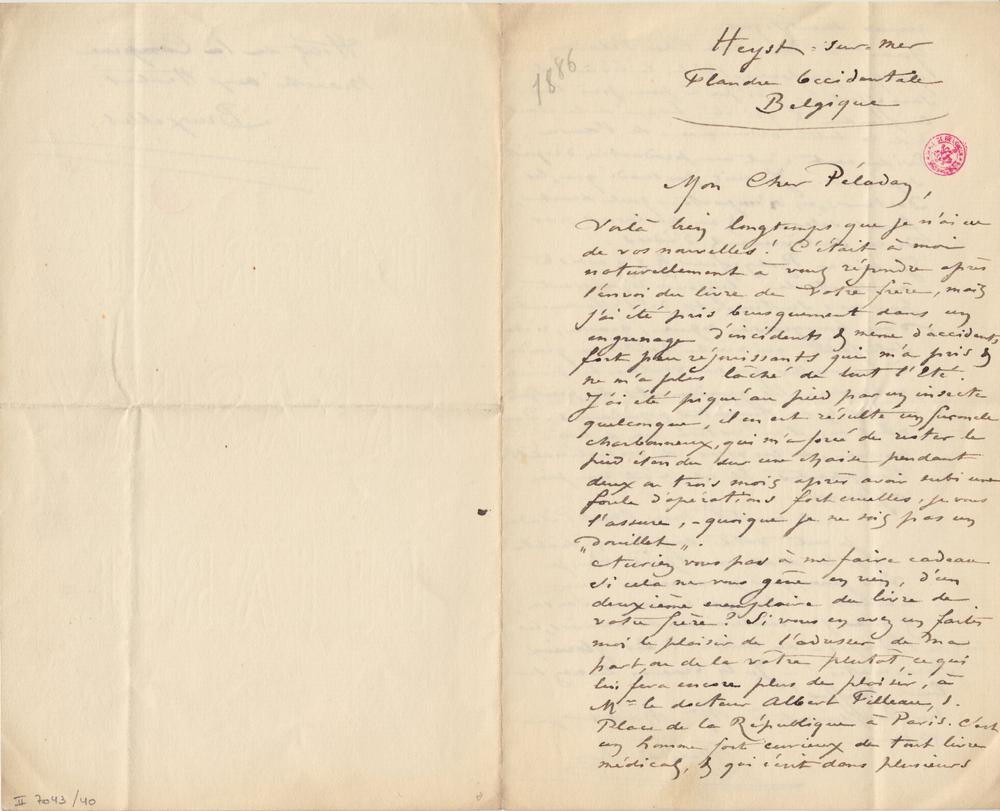 1886
Heyst-sur-mer
Flandre Occidentale
Belgique
Mon Cher Péladan,
Voilà bien longtemps que je n'ai eu
de vos nouvelles! C'était à moi
naturellement à vous répondre après
l'envoi du livre de votre frère, mais
j'ai été pris brusquement dans un
engrenage d'incidents & même d'accidents
fort peu réjouissants qui m'a pris &
ne m'a plus lâché de tout l'Eté.
J'ai été piqué au pied par un insecte
quelconque, il en est résulté un furoncle
charbonneux, qui m'a forcé de rester le
pied étendu sur une chaise pendant
deux ou trois mois après avoir subi une
foule d'opérations fort cruelles, je vous
l'assure, - quoique je ne sois pas un
"douillet".
Auriez vous pas à me faire cadeau
si cela ne vous gêne en rien, d'un
deuxième exemplaire du livre de
votre frère? Si vous en avez un faites
moi le plaisir de l'adresser de ma
part, ou de la vôtre plutôt, ce qui
lui fera encore plus de plaisir, à
Mr le docteur Albert Filleau, 1.
Place de la République à Paris. C'est
un homme fort curieux de tout livre
médical, & qui écrit dans plusieurs
II 7043/40